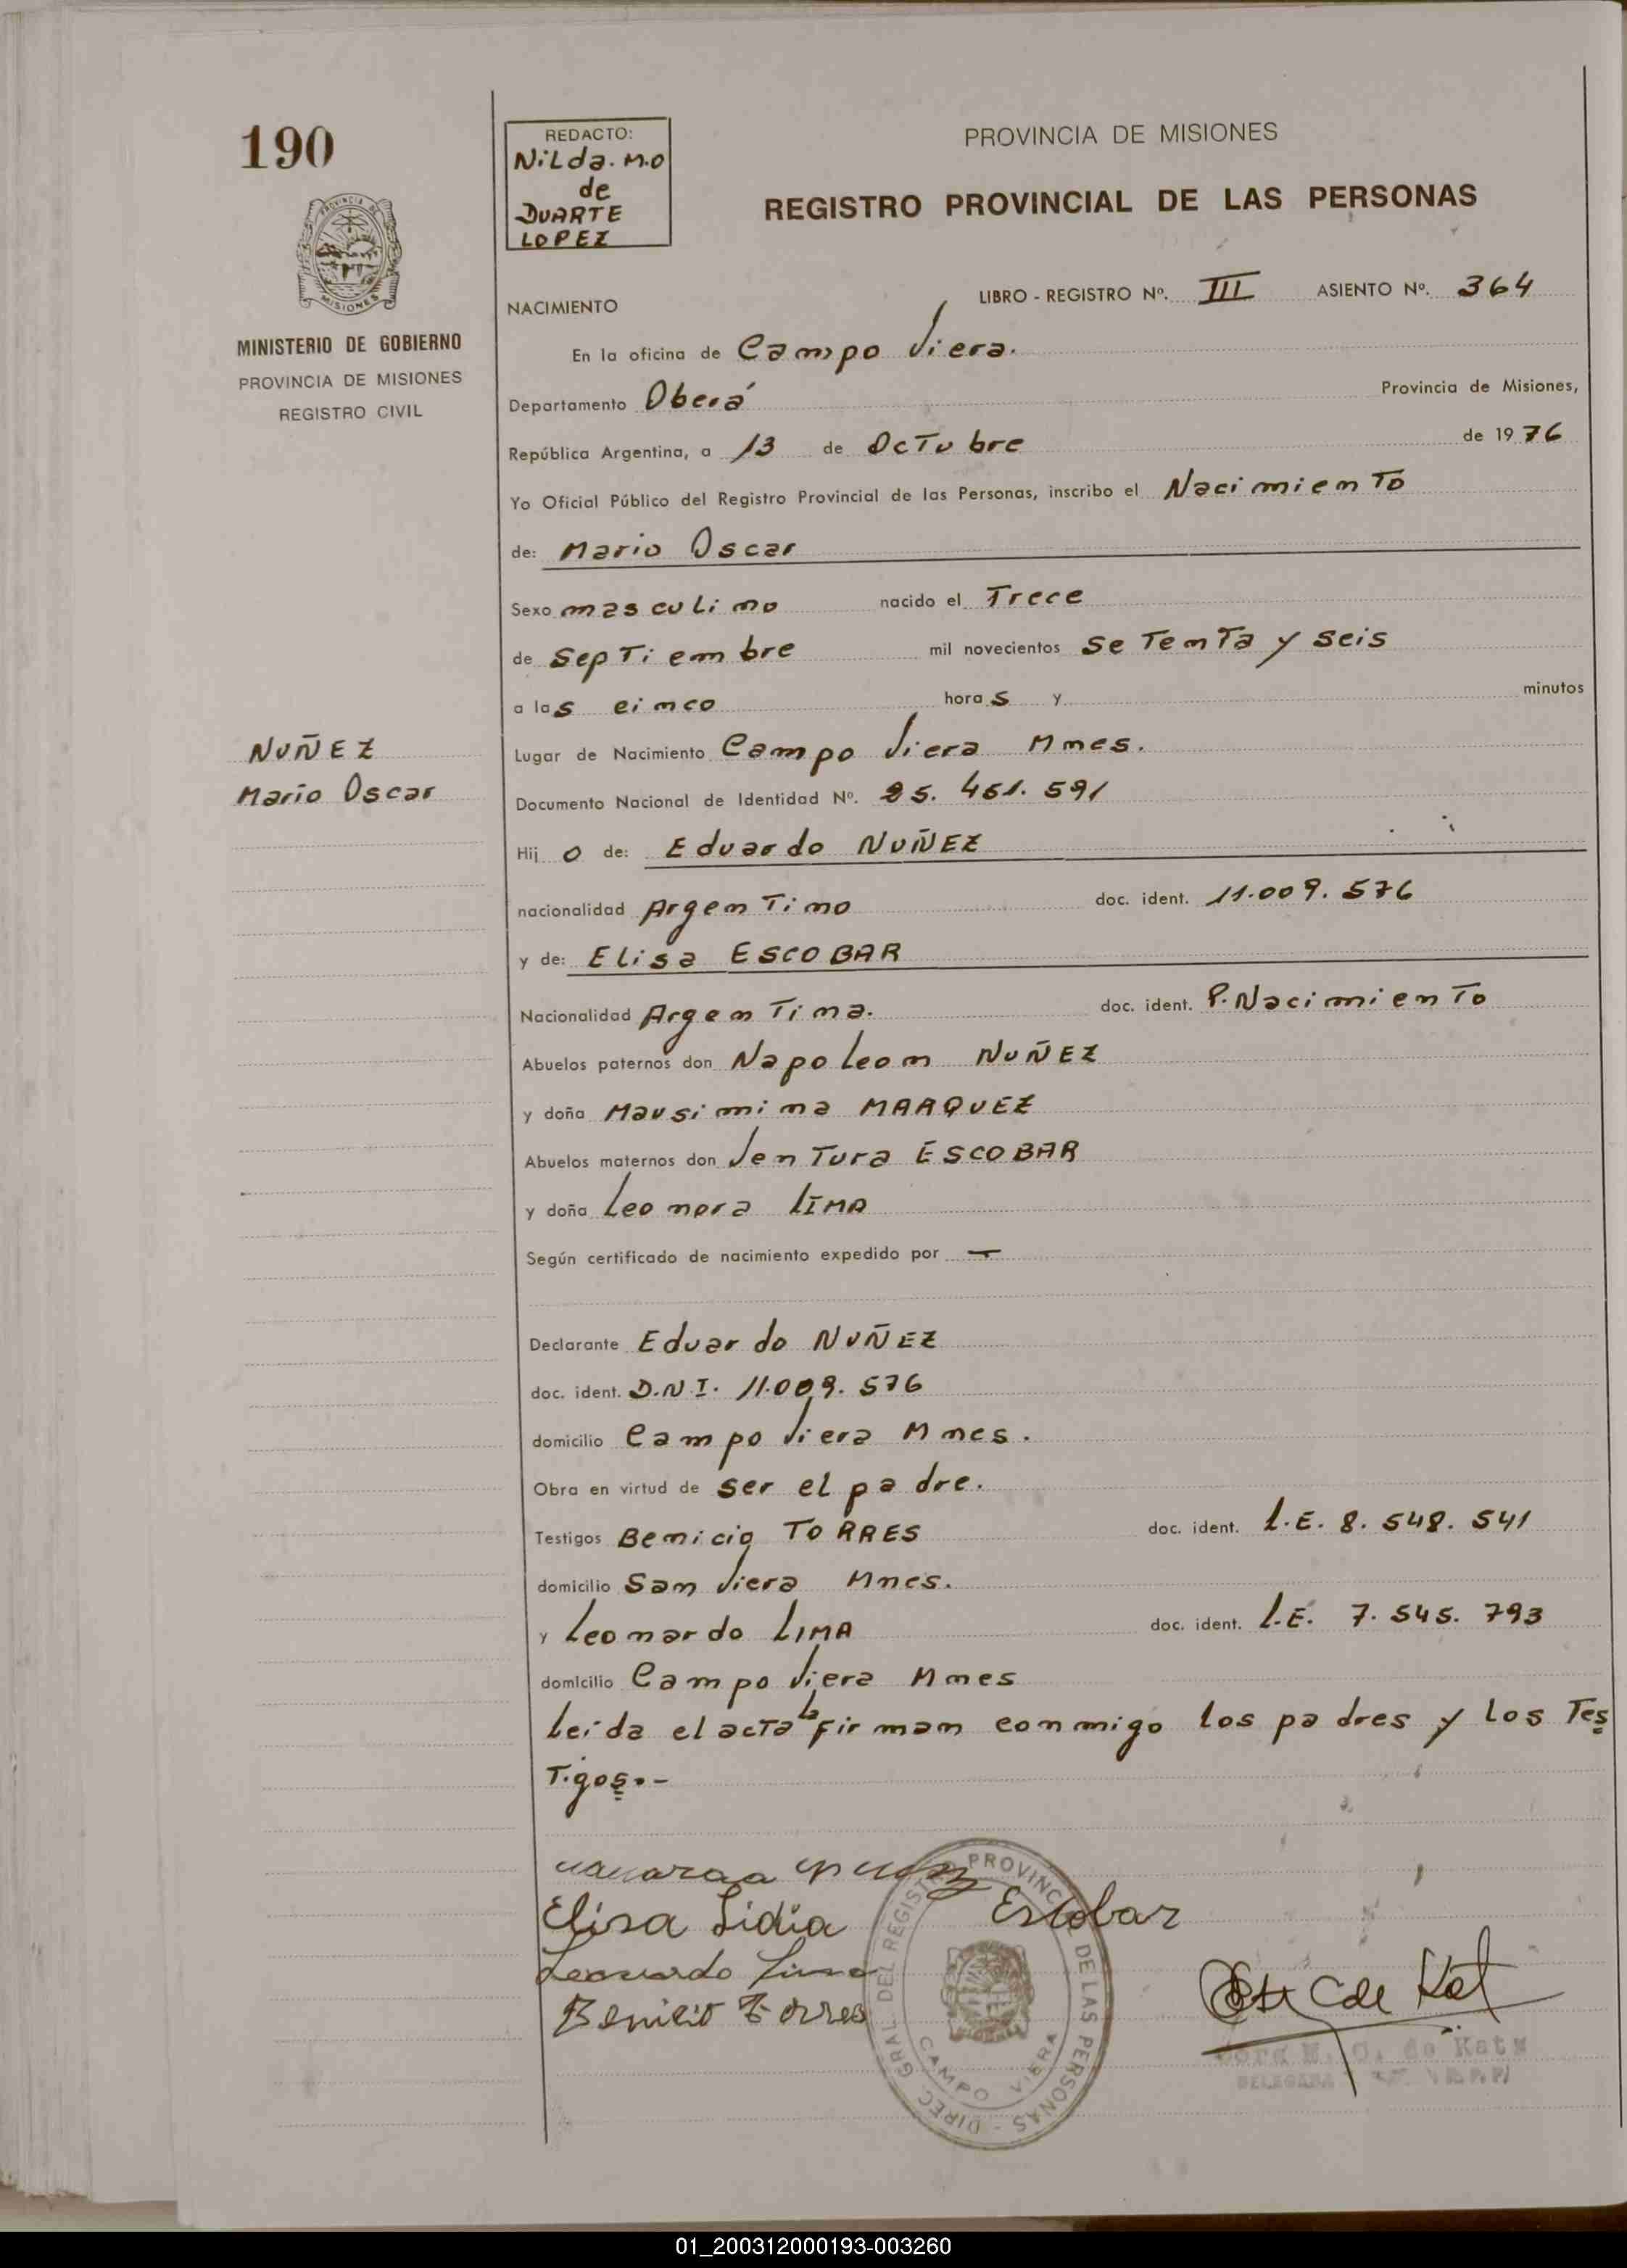 190
REDACTO:
NiLda. M.O
de
DUARTE
LOPEZ
PROVINCIA DE MISIONES
REGISTRO PROVINCIAL DE LAS PERSONAS
PROVINCIA DE
MISIONES
MINISTERIO DE GOBIERNO
PROVINCIA DE MISIONES
REGISTRO CIVIL
LIBRO - REGISTRO Nº. III ASIENTO Nº. 364
NACIMIENTO
En la oficina de Campo Viera.
Departamento Oberá Provincia de Misiones,
República Argentina, a 13 de Octubre de 1976
Yo Oficial Público del Registro Provincial de las Personas, inscribo el Nacimiento
de: Mario Oscar
Sexo masculino nacido el Trece
de Septiembre mil novecientos Setenta y seis
a las cinco horas y minutos
Lugar de Nacimiento Campo Viera Mnes.
NUÑEZ
Mario Oscar
Documento Nacional de Identidad Nº. 25. 451. 591
Hijo de: Eduardo NUÑEZ
nacionalidad Argentino doc. ident. 11.009. 576
y de: Elisa ESCOBAR
Nacionalidad Argentina. doc. ident. P. Nacimiento
Abuelos paternos don Napoleon NUÑEZ
y doña Mausimina MARQUEZ
Abuelos maternos don Ventura ESCOBAR
y doña Leonora LIMA
Según certificado de nacimiento expedido por —
Declarante Eduardo NUÑEZ
doc. ident. D.N.I. 11.009. 576
domicilio Campo Viera Mnes.
Obra en virtud de ser el padre.
Testigos Benicio TORRES doc. ident. L.E. 8. 548. 541
domicilio San Viera Mnes.
y Leonardo LIMA doc. ident. L.E. 7. 545. 793
domicilio Campo Viera Mnes
Leida el acta la firman conmigo los padres y los Tes
Tigos.-
Elisa Lidia Escobar
Leonardo Lima
Benicio Torres
DIREC. GRAL DEL REGISTRO PROVINCIAL DE LAS PERSONAS
CAMPO VIERA
de Katz
01_200312000193-003260